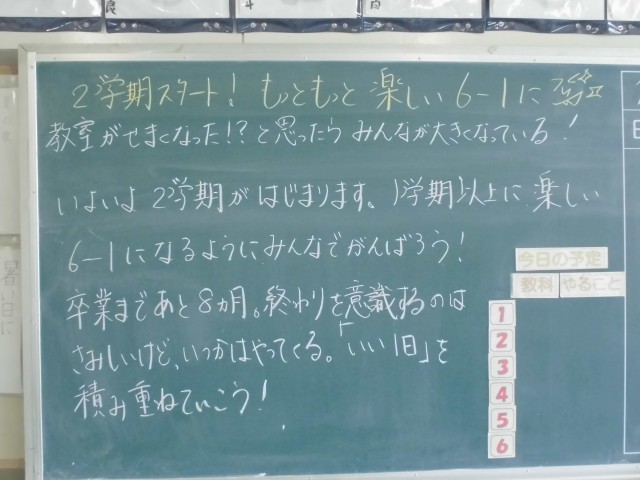 2学期スタート! もっともっと 楽しい 6-1に
教室がせまくなった!?と思ったら みんなが大きくなっている!
いよいよ 2学期が はじまります。1学期以上に 楽しい
6-1になるようにみんなでがんばろう!
卒業まであと8カ月。終わりを意識するのは
さみしいけど、いつかはやってくる。「いい1日」を
積み重ねていこう!
今日の予定
教科 やること
1
2
3
4
5
6
暑い日に